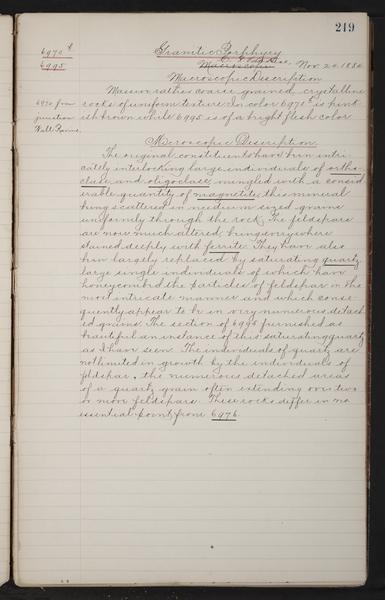 219
6970 &
6995
Granitic Porphyry
Macroscopic
Nov 20. 1886
Macroscopic Description
Massive rather coarse grained crystalline
6970 from
rocks of uniform texture. In color 6970 is pink
junction
ish brown while 6995 is of a bright flesh color
Wall Ravine.
Microscopic Description.
The original constituents have been intri-
cately interlocking large individuals of ortho-
clase and oligoclase, mingled with a consid
erable quantity of magnetite, this mineral
being scattered in medium sized grains
uniformly through the rock. The feldspars
are now much altered, being everywhere
stained deeply with ferrite. They have also
been largely replaced by saturating quartz
large single individuals of which have
honeycombed the particles of feldspar in the
most intricate manner and which conse
quently appear to be in very numerous detach
ed grains. The section of 6995 furnished as
beautiful an instance of this saturating quartz
as I have seen. The individuals of quartz are
not limited in growth by the individuals of
feldspar, the numerous detached areas
of a quartz grain often extending over two
or more feldspars. These rocks differ in no
essential point from 6976.